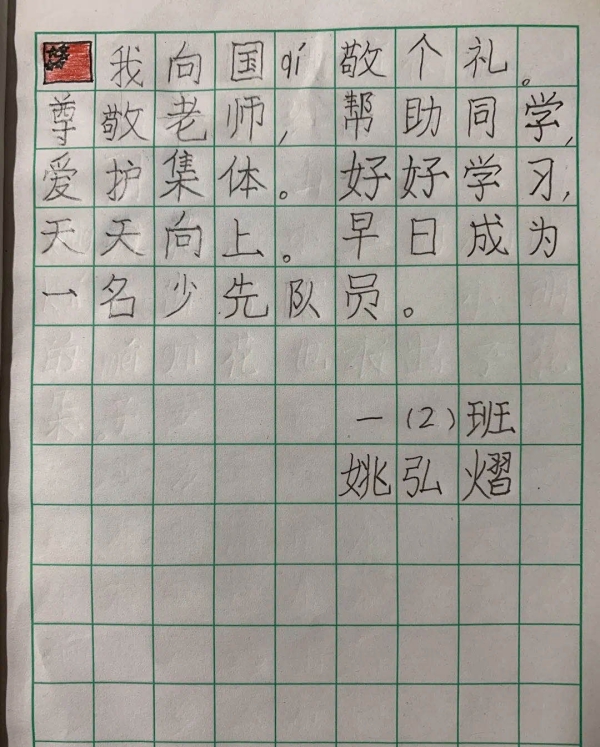 我向国qí敬个礼。
尊敬老师,帮助同学,
爱护集体。好好学习,
天天向上。早日成为
一名少先队员。
一(2)班
姚弘熠